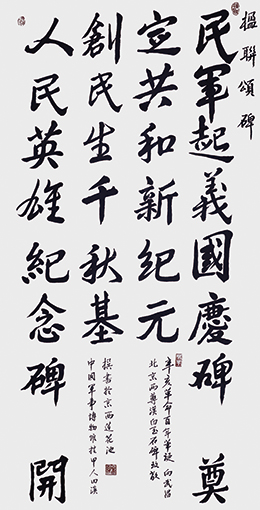 楹聯頌碑
民軍起義國慶碑 奠
定共和新紀元
辛亥革命百年華誕向武昌
北京兩尊漢白玉石碑致敬
創民生千秋基
撰書於京西蓮花池
中國軍事博物
人民英雄紀念碑 開